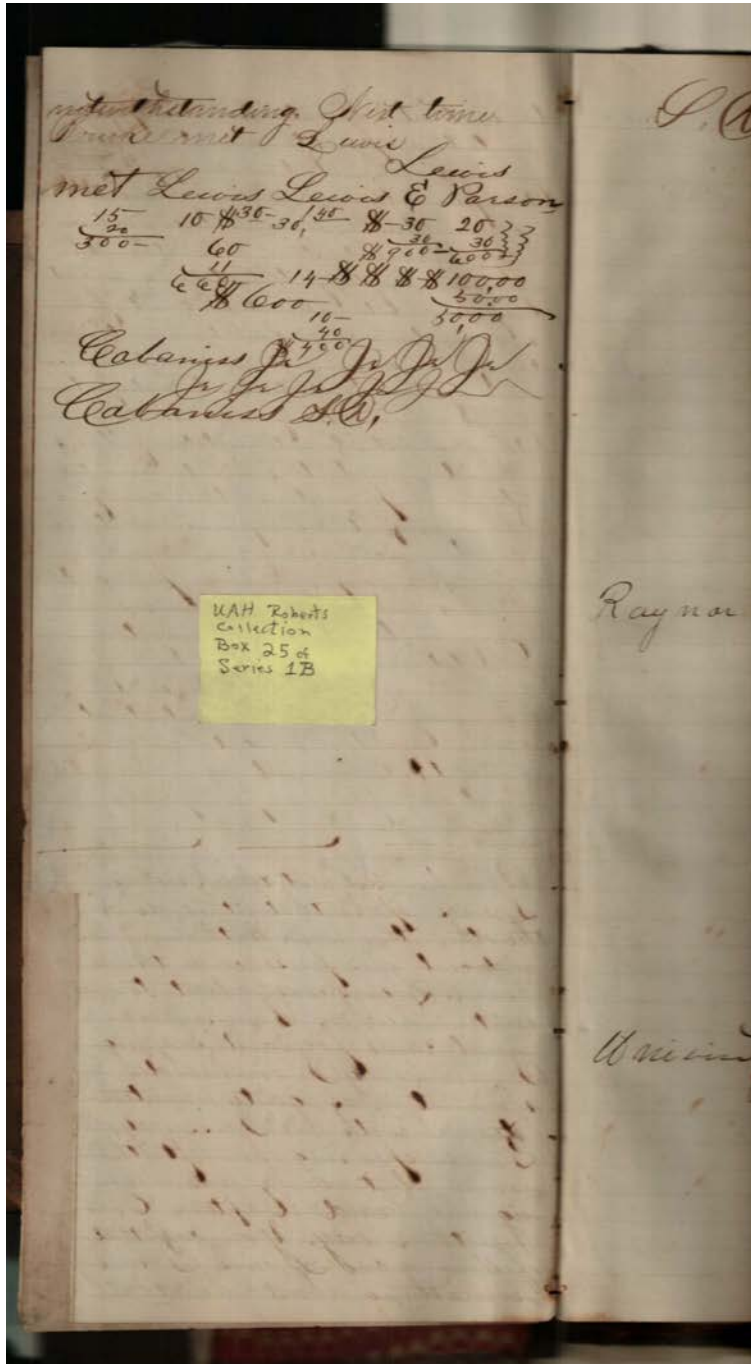 notwithstanding. Next time
met Lewis
Lewis
met Lewis Lewis E Parson
15 10 $30- 30, 40 $-30 20
20 30 30
300- 60 $900- 600-
11 14 $ $ $ $ 100,00
660 50.00
$600 50,00
10-
40
$400
Cabaniss Jr Jr Jr Jr
Jr Jr Jr Jr Jr
Cabaniss S.A,
UAH Roberts
Collection
Box 25 of
Series 1B
S. A
Raynor